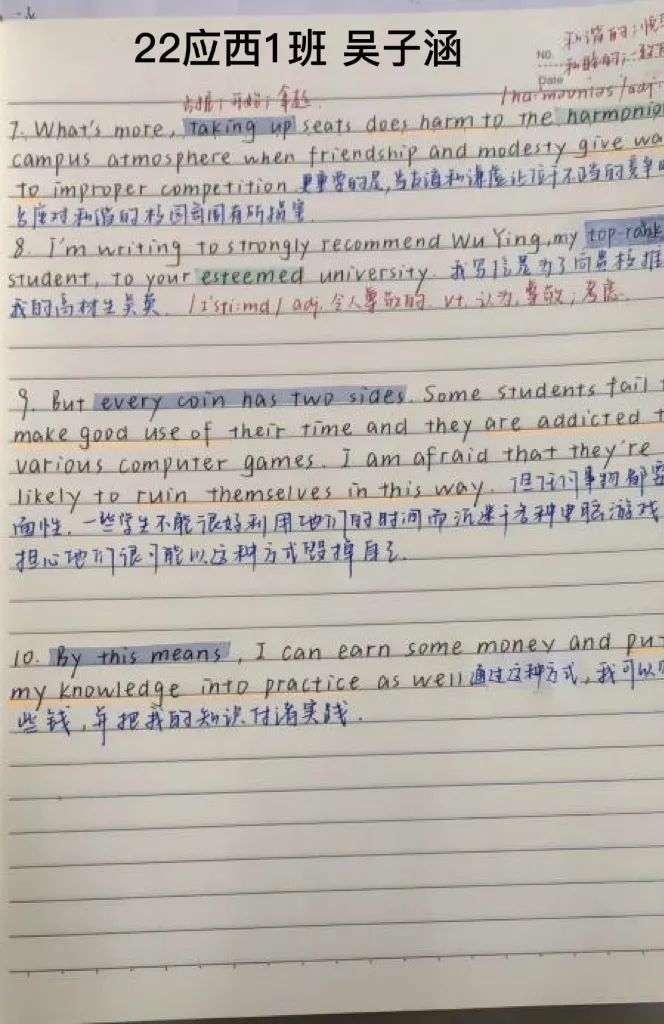 22应西1班 吴子涵
No. 和谐的;
Date 和睦的;
占据;开始;拿起.
7. What's more, taking up seats does harm to the
campus atmosphere when friendship and modesty give
to improper competition 更重要的是,当友谊和谦虚让位于不当的竞争
占座对和谐的校园氛围有所损害.
8. I'm writing to strongly recommend Wu Ying, my top-rank
student, to your esteemed university. 我写信是为了向贵校推
我的高材生吴英. /ɪ'sti:md/ adj. 令人尊敬的. vt. 认为,尊敬;考虑.
9. But every coin has two sides. Some students fail
make good use of their time and they are addicted
various computer games. I am afraid that they're
likely to ruin themselves in this way. 但任何事物都
面性. 一些学生不能很好利用他们的时间而沉迷于各种电脑游戏
担心他们很可能以这种方式毁掉自己.
10. By this means, I can earn some money and put
my knowledge into practice as well 通过这种方式,我可以
些钱,并把我的知识付诸实践.